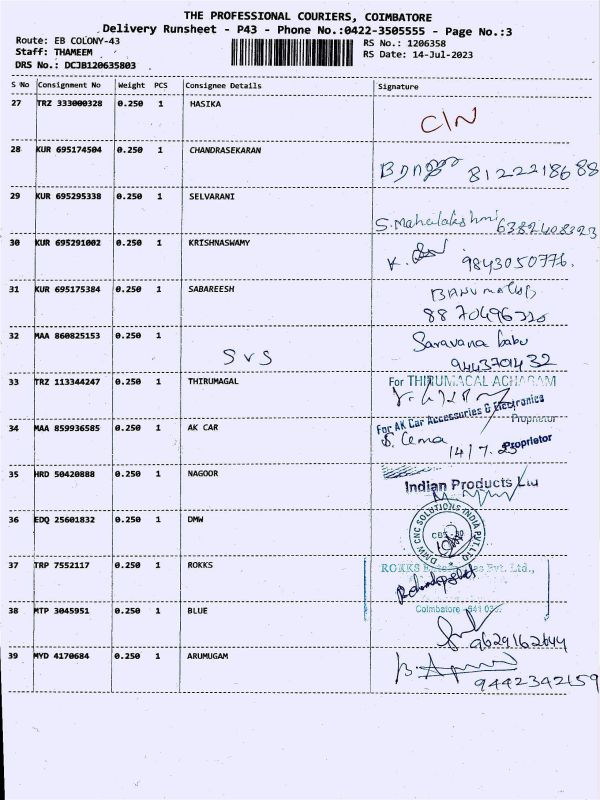 THE PROFESSIONAL COURIERS, COIMBATORE
Delivery Runsheet - P43 - Phone No.:0422-3505555 - Page No.:3
Route: EB COLONY-43
RS No.: 1206358
Staff: THAMEEM
RS Date: 14-Jul-2023
DRS No.: DCJB120635803
S No Consignment No Weight PCS Consignee Details Signature
27 TRZ 333000328 0.250 1 HASIKA
C/N
28 KUR 695174504 0.250 1 CHANDRASEKARAN
8122218688
29 KUR 695295338 0.250 1 SELVARANI
S. Mahalakshmi 6382408323
30 KUR 695291002 0.250 1 KRISHNASWAMY
K. 9843050776.
31 KUR 695175384 0.250 1 SABAREESH
8870496320
32 MAA 860825153 0.250 1
SVS
Saravana babu
9443701432
33 TRZ 113344247 0.250 1 THIRUMAGAL
For THIRUMAGAL ACHAGAM
Proprietor
34 MAA 859936585 0.250 1 AK CAR
For AK Car Accessories & Electronics
14/7.23
Proprietor
35 HRD 50420888 0.250 1 NAGOOR
Indian Products Ltd
36 EDQ 25601832 0.250 1 DMW
DMW CNC SOLUTIONS INDIA PVT. LTD
37 TRP 7552117 0.250 1 ROKKS
ROKKS Pvt. Ltd.,
Coimbatore
38 MTP 3045951 0.250 1 BLUE
9629162644
39 MYD 4170684 0.250 1 ARUMUGAM
9442342159